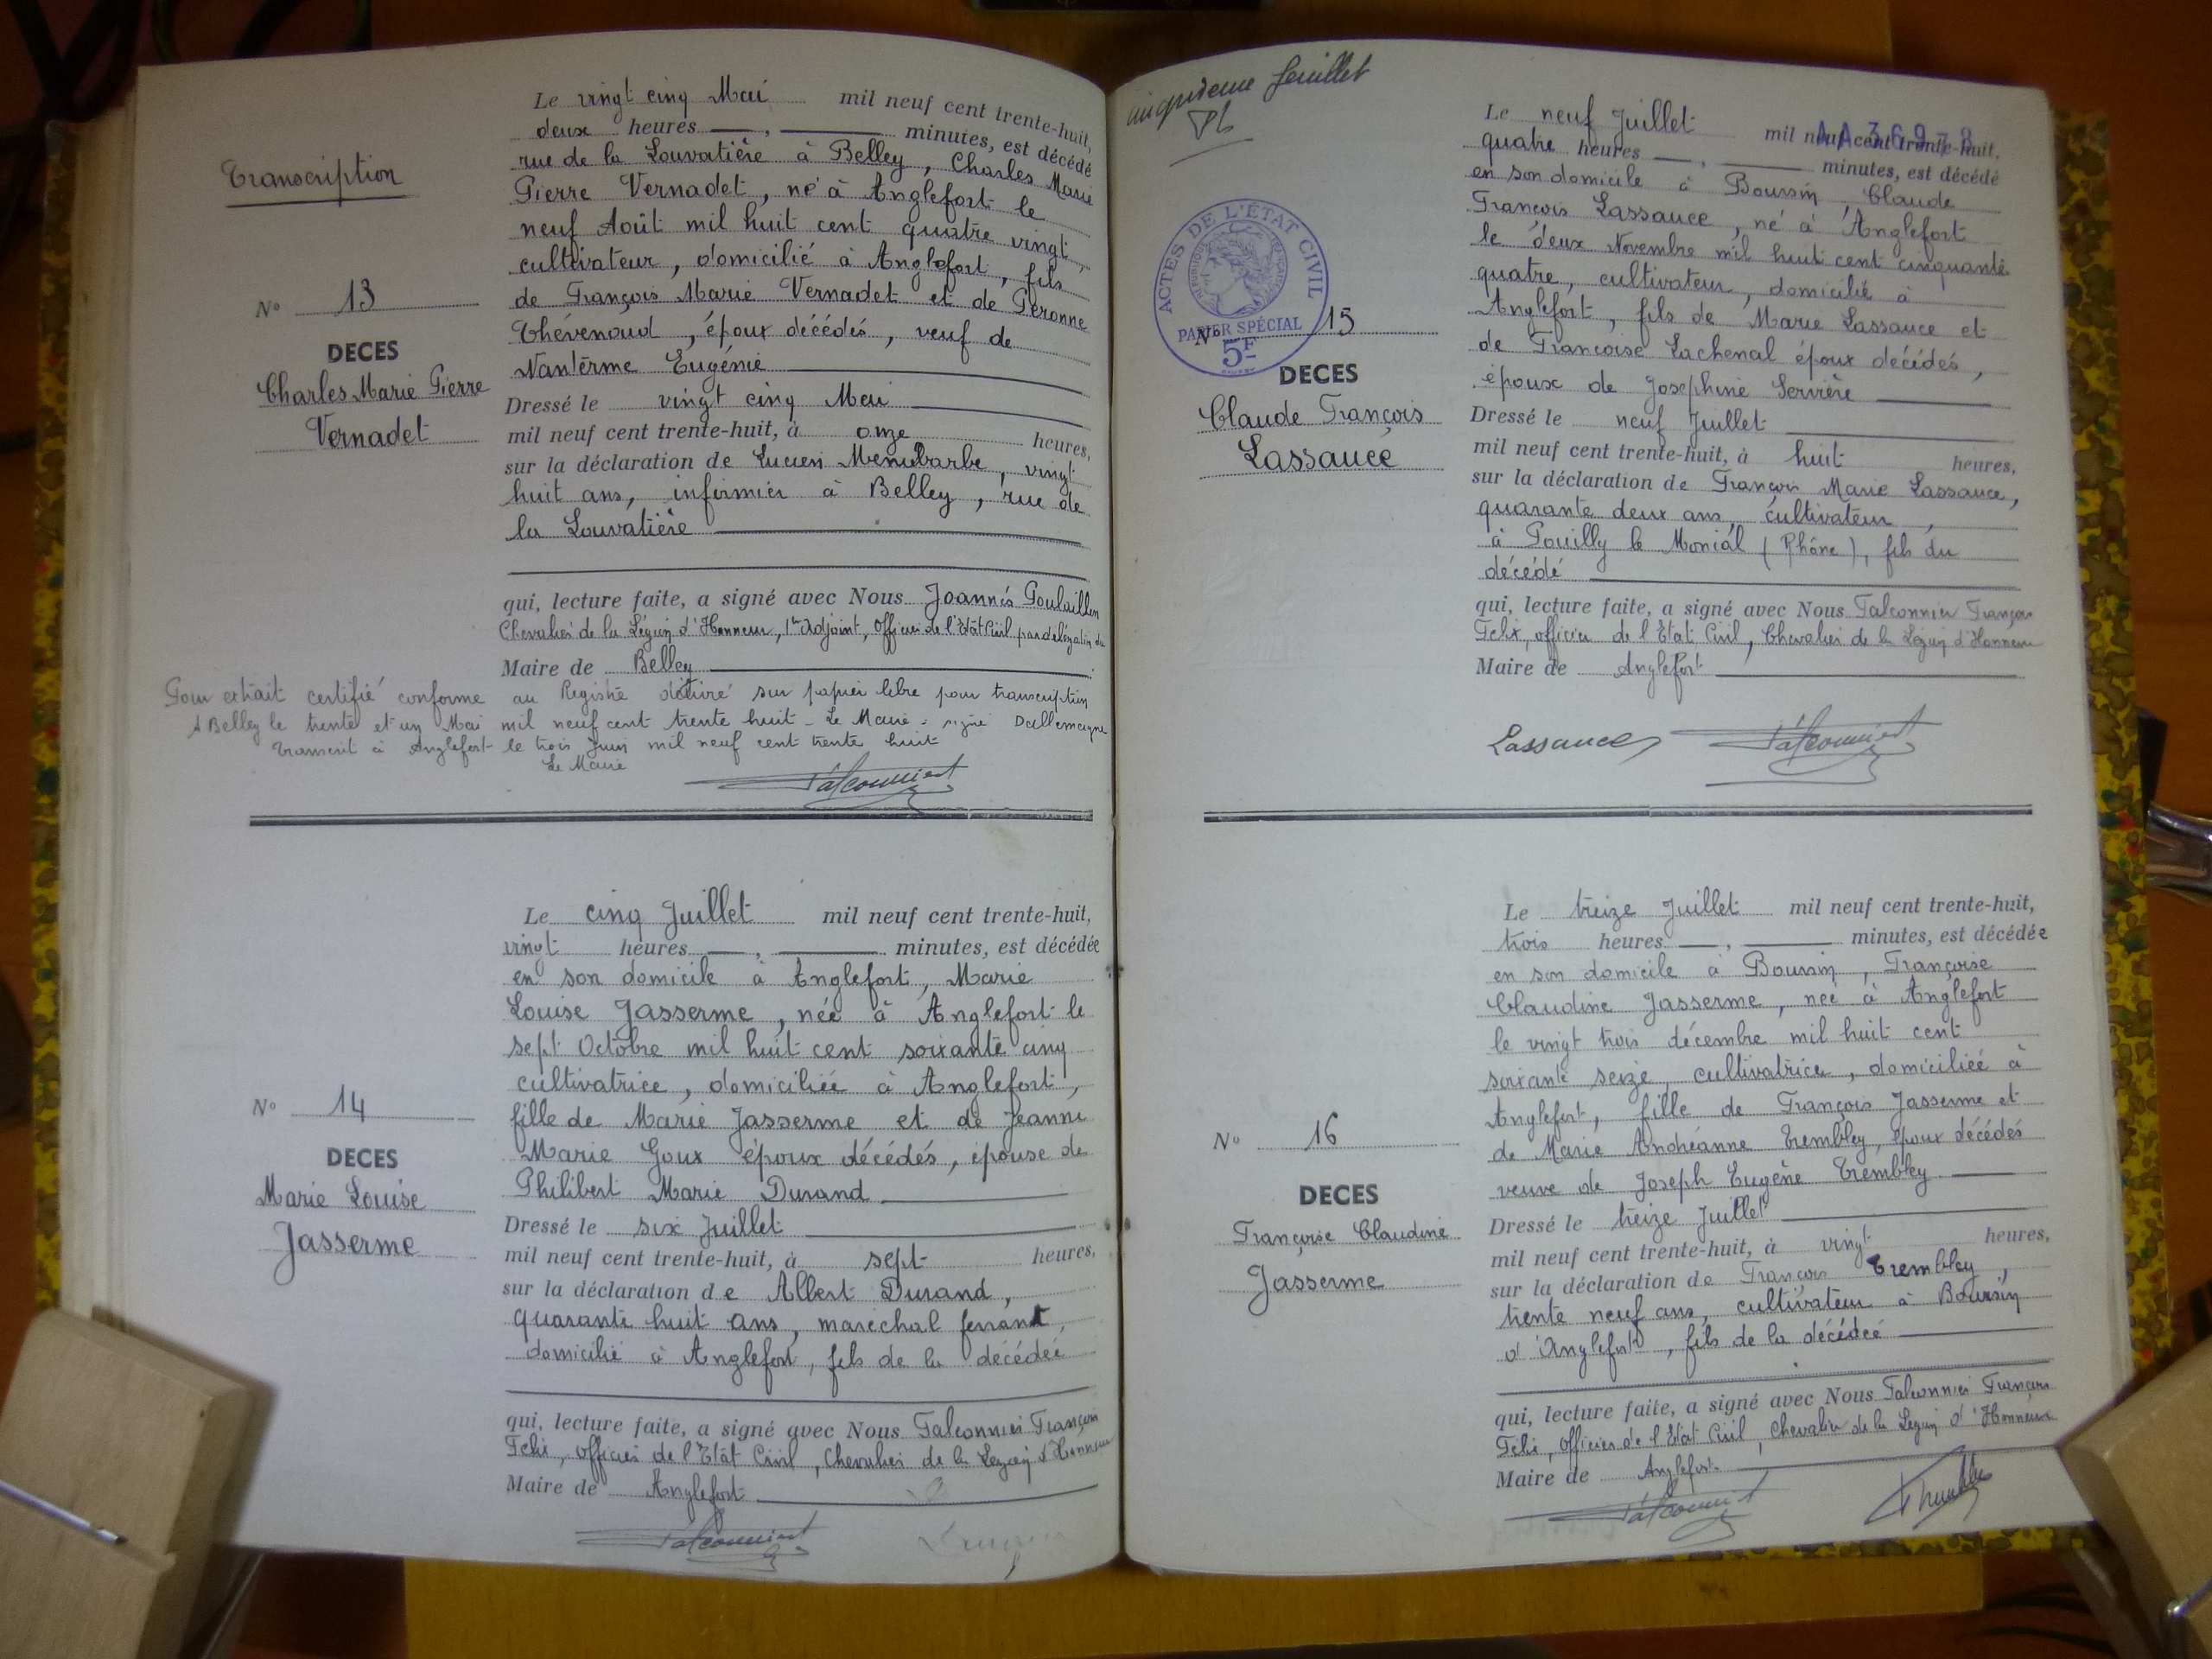 Transcription
N° 13
DECES
Charles Marie Pierre
Vernadet
Le vingt cinq Mai mil neuf cent trente-huit,
deux heures —, — minutes, est décédé
rue de la Louvatière à Belley, Charles Marie
Pierre Vernadet, né à Anglefort le
neuf Août mil huit cent quatre vingt,
cultivateur, domicilié à Anglefort, fils
de François Marie Vernadet et de Péronne
Thévenoud, époux décédés, veuf de
Nantèrme Eugénie
Dressé le vingt cinq Mai
mil neuf cent trente-huit, à onze heures,
sur la déclaration de Lucien, vingt
huit ans, infirmier à Belley, rue de
la Louvatière
qui, lecture faite, a signé avec Nous Joannés
Chevalier de la Légion d'Honneur, 1er Adjoint, Officier de l'Etat Civil par délégation du
Maire de Belley
Pour extrait certifié conforme au Registre délivré sur papier libre pour transcription
A Belley le trente et un Mai mil neuf cent trente huit - Le Maire : signé Dallemagne
Transcrit à Anglefort le trois Juin mil neuf cent trente huit
Le Maire
Falconnier
N° 14
DECES
Marie Louise
Jasserme
Le cinq Juillet mil neuf cent trente-huit,
vingt heures —, — minutes, est décédée
en son domicile à Anglefort, Marie
Louise Jasserme, née à Anglefort le
sept Octobre mil huit cent soixante cinq
cultivatrice, domiciliée à Anglefort,
fille de Marie Jasserme et de Jeanne
Marie Goux époux décédés, épouse de
Philibert Marie Durand
Dressé le six Juillet
mil neuf cent trente-huit, à sept heures,
sur la déclaration de Albert Durand,
quarante huit ans, maréchal ferrant,
domicilié à Anglefort, fils de la décédée
qui, lecture faite, a signé avec Nous Falconnier François
Félix, officier de l'Etat Civil, Chevalier de la Légion d'Honneur
Maire de Anglefort
Falconnier
cinquième feuillet
ACTES DE L'ÉTAT CIVIL
RÉPUBLIQUE FRANÇAISE
PAPIER SPÉCIAL
5F
N° 15
DECES
Claude François
Lassauce
Le neuf Juillet mil neuf cent trente-huit,
quatre heures —, — minutes, est décédé
en son domicile à Boursin Claude
François Lassauce, né à Anglefort
le deux Novembre mil huit cent cinquante
quatre, cultivateur, domicilié à
Anglefort, fils de Marie Lassauce et
de Françoise Lachenal époux décédés,
époux de Josephine Servière
Dressé le neuf Juillet
mil neuf cent trente-huit, à huit heures,
sur la déclaration de François Marie Lassauce,
quarante deux ans, cultivateur,
à Pouilly le Monial (Rhône), fils du
décédé
qui, lecture faite, a signé avec Nous Falconnier François
Félix, officier de l'Etat Civil, Chevalier de la Légion d'Honneur
Maire de Anglefort
Lassauce Falconnier
N° 16
DECES
Françoise Claudine
Jasserme
Le treize Juillet mil neuf cent trente-huit,
trois heures —, — minutes, est décédée
en son domicile à Boursin, Françoise
Claudine Jasserme, née à Anglefort
le vingt trois décembre mil huit cent
soixante seize, cultivatrice, domiciliée à
Anglefort, fille de François Jasserme et
de Marie Andréanne Trembley, époux décédés
veuve de Joseph Eugène Trembley
Dressé le treize Juillet
mil neuf cent trente-huit, à vingt heures,
sur la déclaration de François Trembley,
trente neuf ans, cultivateur à Boursin
d'Anglefort, fils de la décédée
qui, lecture faite, a signé avec Nous Falconnier François
Félix, Officier de l'Etat Civil, Chevalier de la Légion d'Honneur
Maire de Anglefort
Falconnier